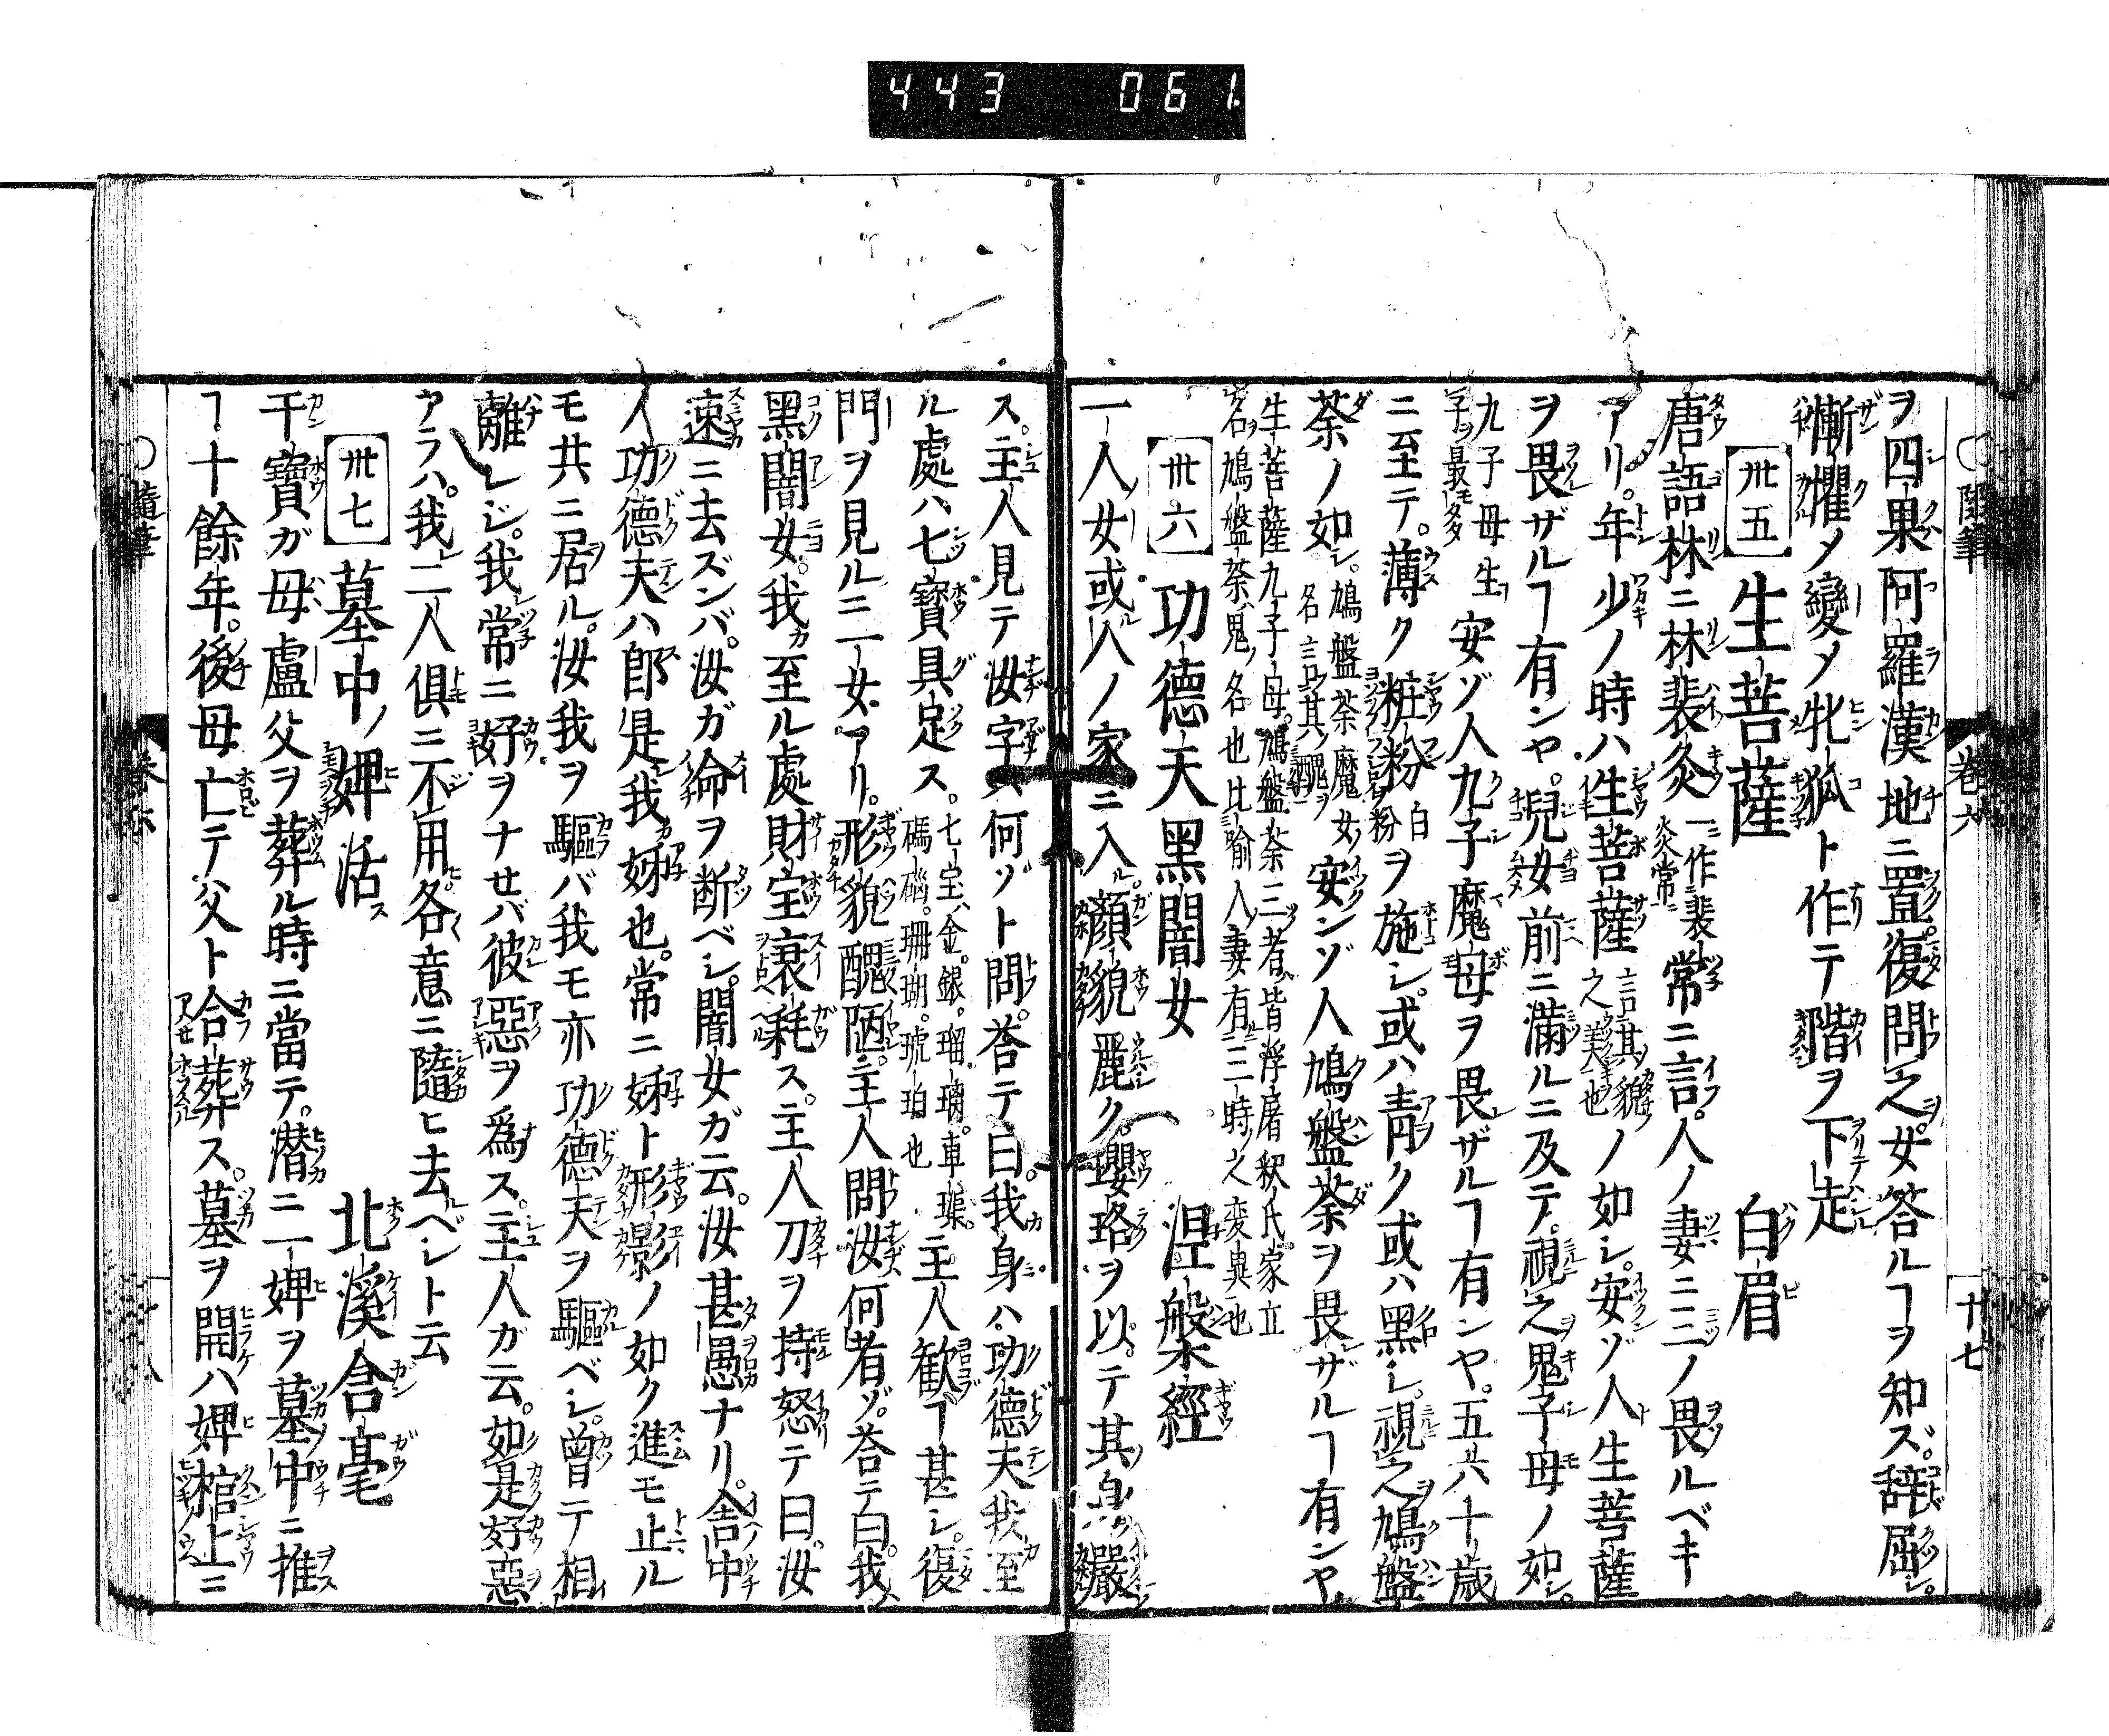 443 061
○随筆 巻六 十七
ヲ四果阿羅漢地ニ置。復問之女答ルヿヲ知ズ。辞屈シ。
慚懼〆變〆牝狐ト作テ階ヲ下走
卅五 生菩薩 白眉
唐語林ニ林裴炙一作裴炎常常ニ言。人ノ妻ニ三ノ畏ルベキ
アリ。年少ノ時ハ生菩薩言其貌之美也ノ如シ。安ゾ人生菩薩
ヲ畏ザルヿ有ンヤ。兒女前ニ滿ルニ及テ。視之鬼子母ノ如シ。
九子母生子ヲ最モ安ゾ人九子魔母ヲ畏ザルヿ有ンヤ。五六十歳
ニ至テ。薄ク粧粉白粉ヲ施シ。或ハ青ク或ハ黑シ。視之鳩盤
荼ノ如シ。鳩盤荼魔女ノ名言其ノ醜ヲ安ンゾ人鳩盤荼ヲ畏ザルヿ有ンヤ
生菩薩九子母。鳩盤荼三者ハ皆浮屠釈氏家立
名ヲ鳩盤荼ハ鬼ノ名也比喻人ノ妻有三時之変異也
卅六 功德天黑闇女 涅槃經
一人女或人ノ家ニ入ル。顔貌麗ク。瓔珞ヲ以テ其身ヲ嚴
ス。主人見テ汝字ハ何ゾト問。荅テ曰。我身ハ功德天我至
ル處ハ七寶具足ス。七宝ハ金。銀。瑠璃。車磲。碼碯。珊瑚。琥珀也主人歓ヿ甚シ。復
門ヲ見ルニ一女アリ。形貌醜陋主人問汝何者ゾ荅ニ曰。我ハ
黑闇女。我カ至ル處財宝衰耗ス。主人刀ヲ持怒テ曰。汝
速ニ去ズンバ。汝ガ命ヲ断ベシ。闇女ガ云。汝甚愚ナリ。舎中
人功德天ハ即是我姊也。常ニ姊ト形影ノ如ク進モ止ル
モ共ニ居ル。汝我ヲ驅バ我モ亦功德天ヲ驅ベシ。曽テ相
離レシ。我常ニ好ヲナセバ彼惡ヲ爲ス。主人ガ云。如是好惡
アラハ。我二人倶ニ不用各意ニ隨ヒ去ベシト云
卅七 墓中ノ婢活ス 北溪含毫
干寶ガ母盧父ヲ葬ル時ニ當テ。潜ニ一婢ヲ墓中ニ推
ヿ十餘年。後母亡テ父ト合葬ス。墓ヲ開ハ婢棺上ニ
○隨筆 巻六